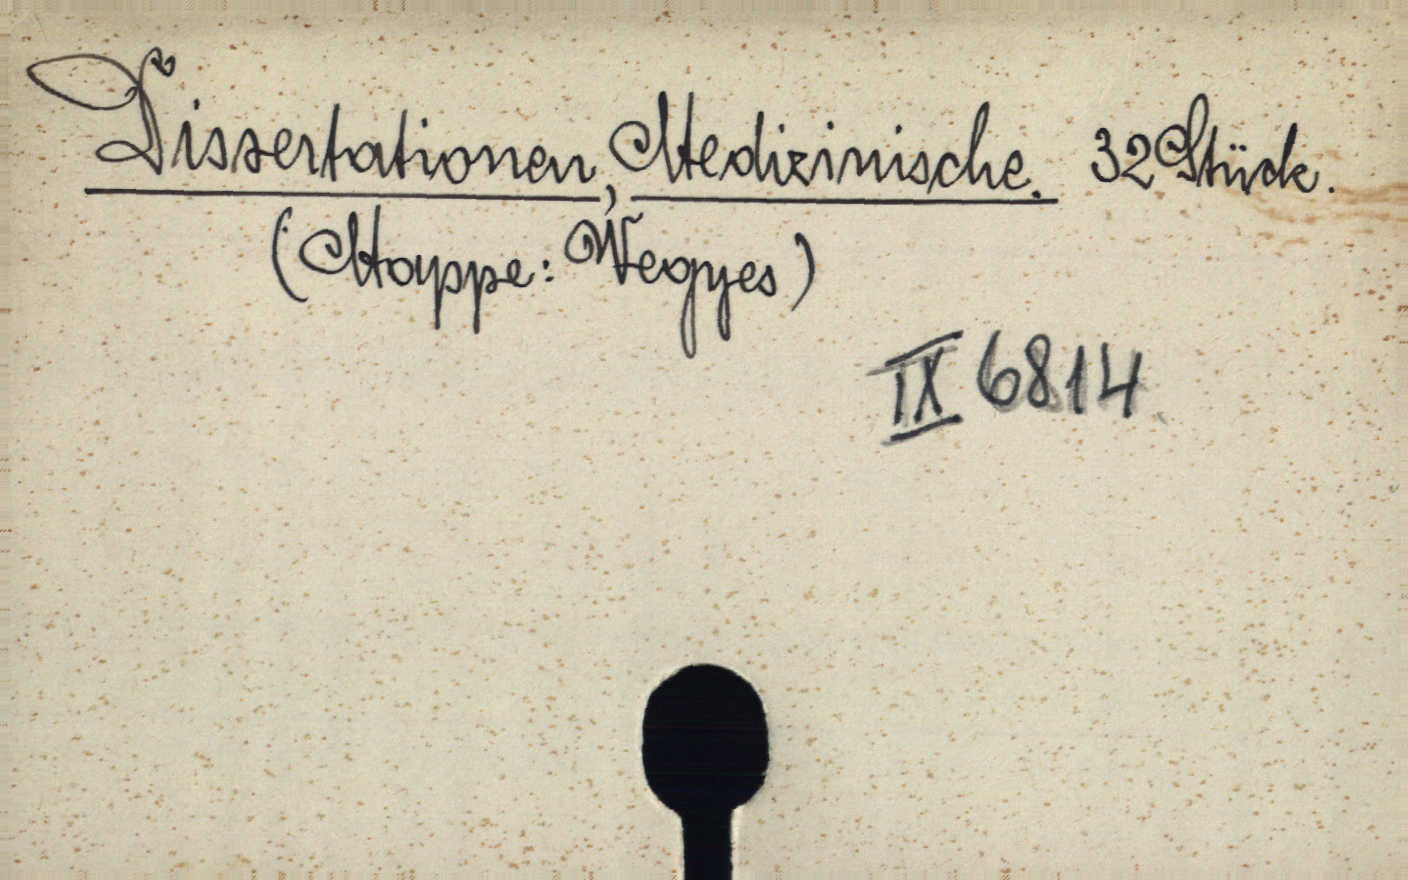 Dissertationen, Medizinische. 32 Stück.
(Mappe: Wegyes)
IX 6814